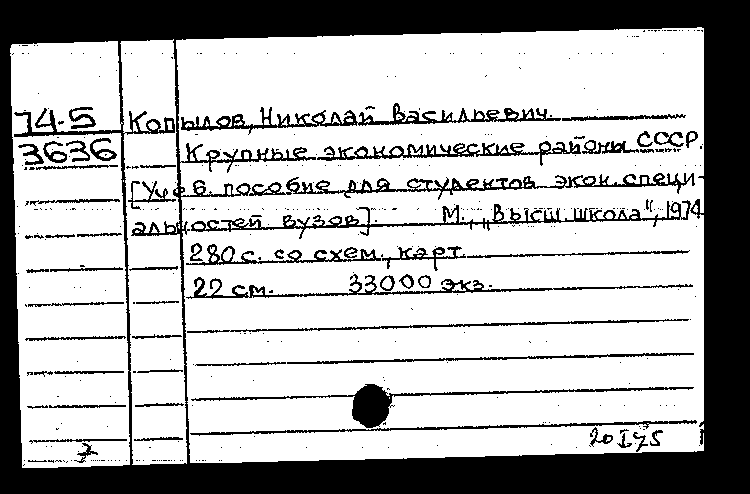 74-5 Копылов, Николай Васильевич.
3636 Крупные экономические районы СССР.
[Учеб. пособие для студентов экон. специ-
альностей вузов]. М., „Высш. школа", 1974
280 с. со схем., карт.
22 см. 33000 экз.
7